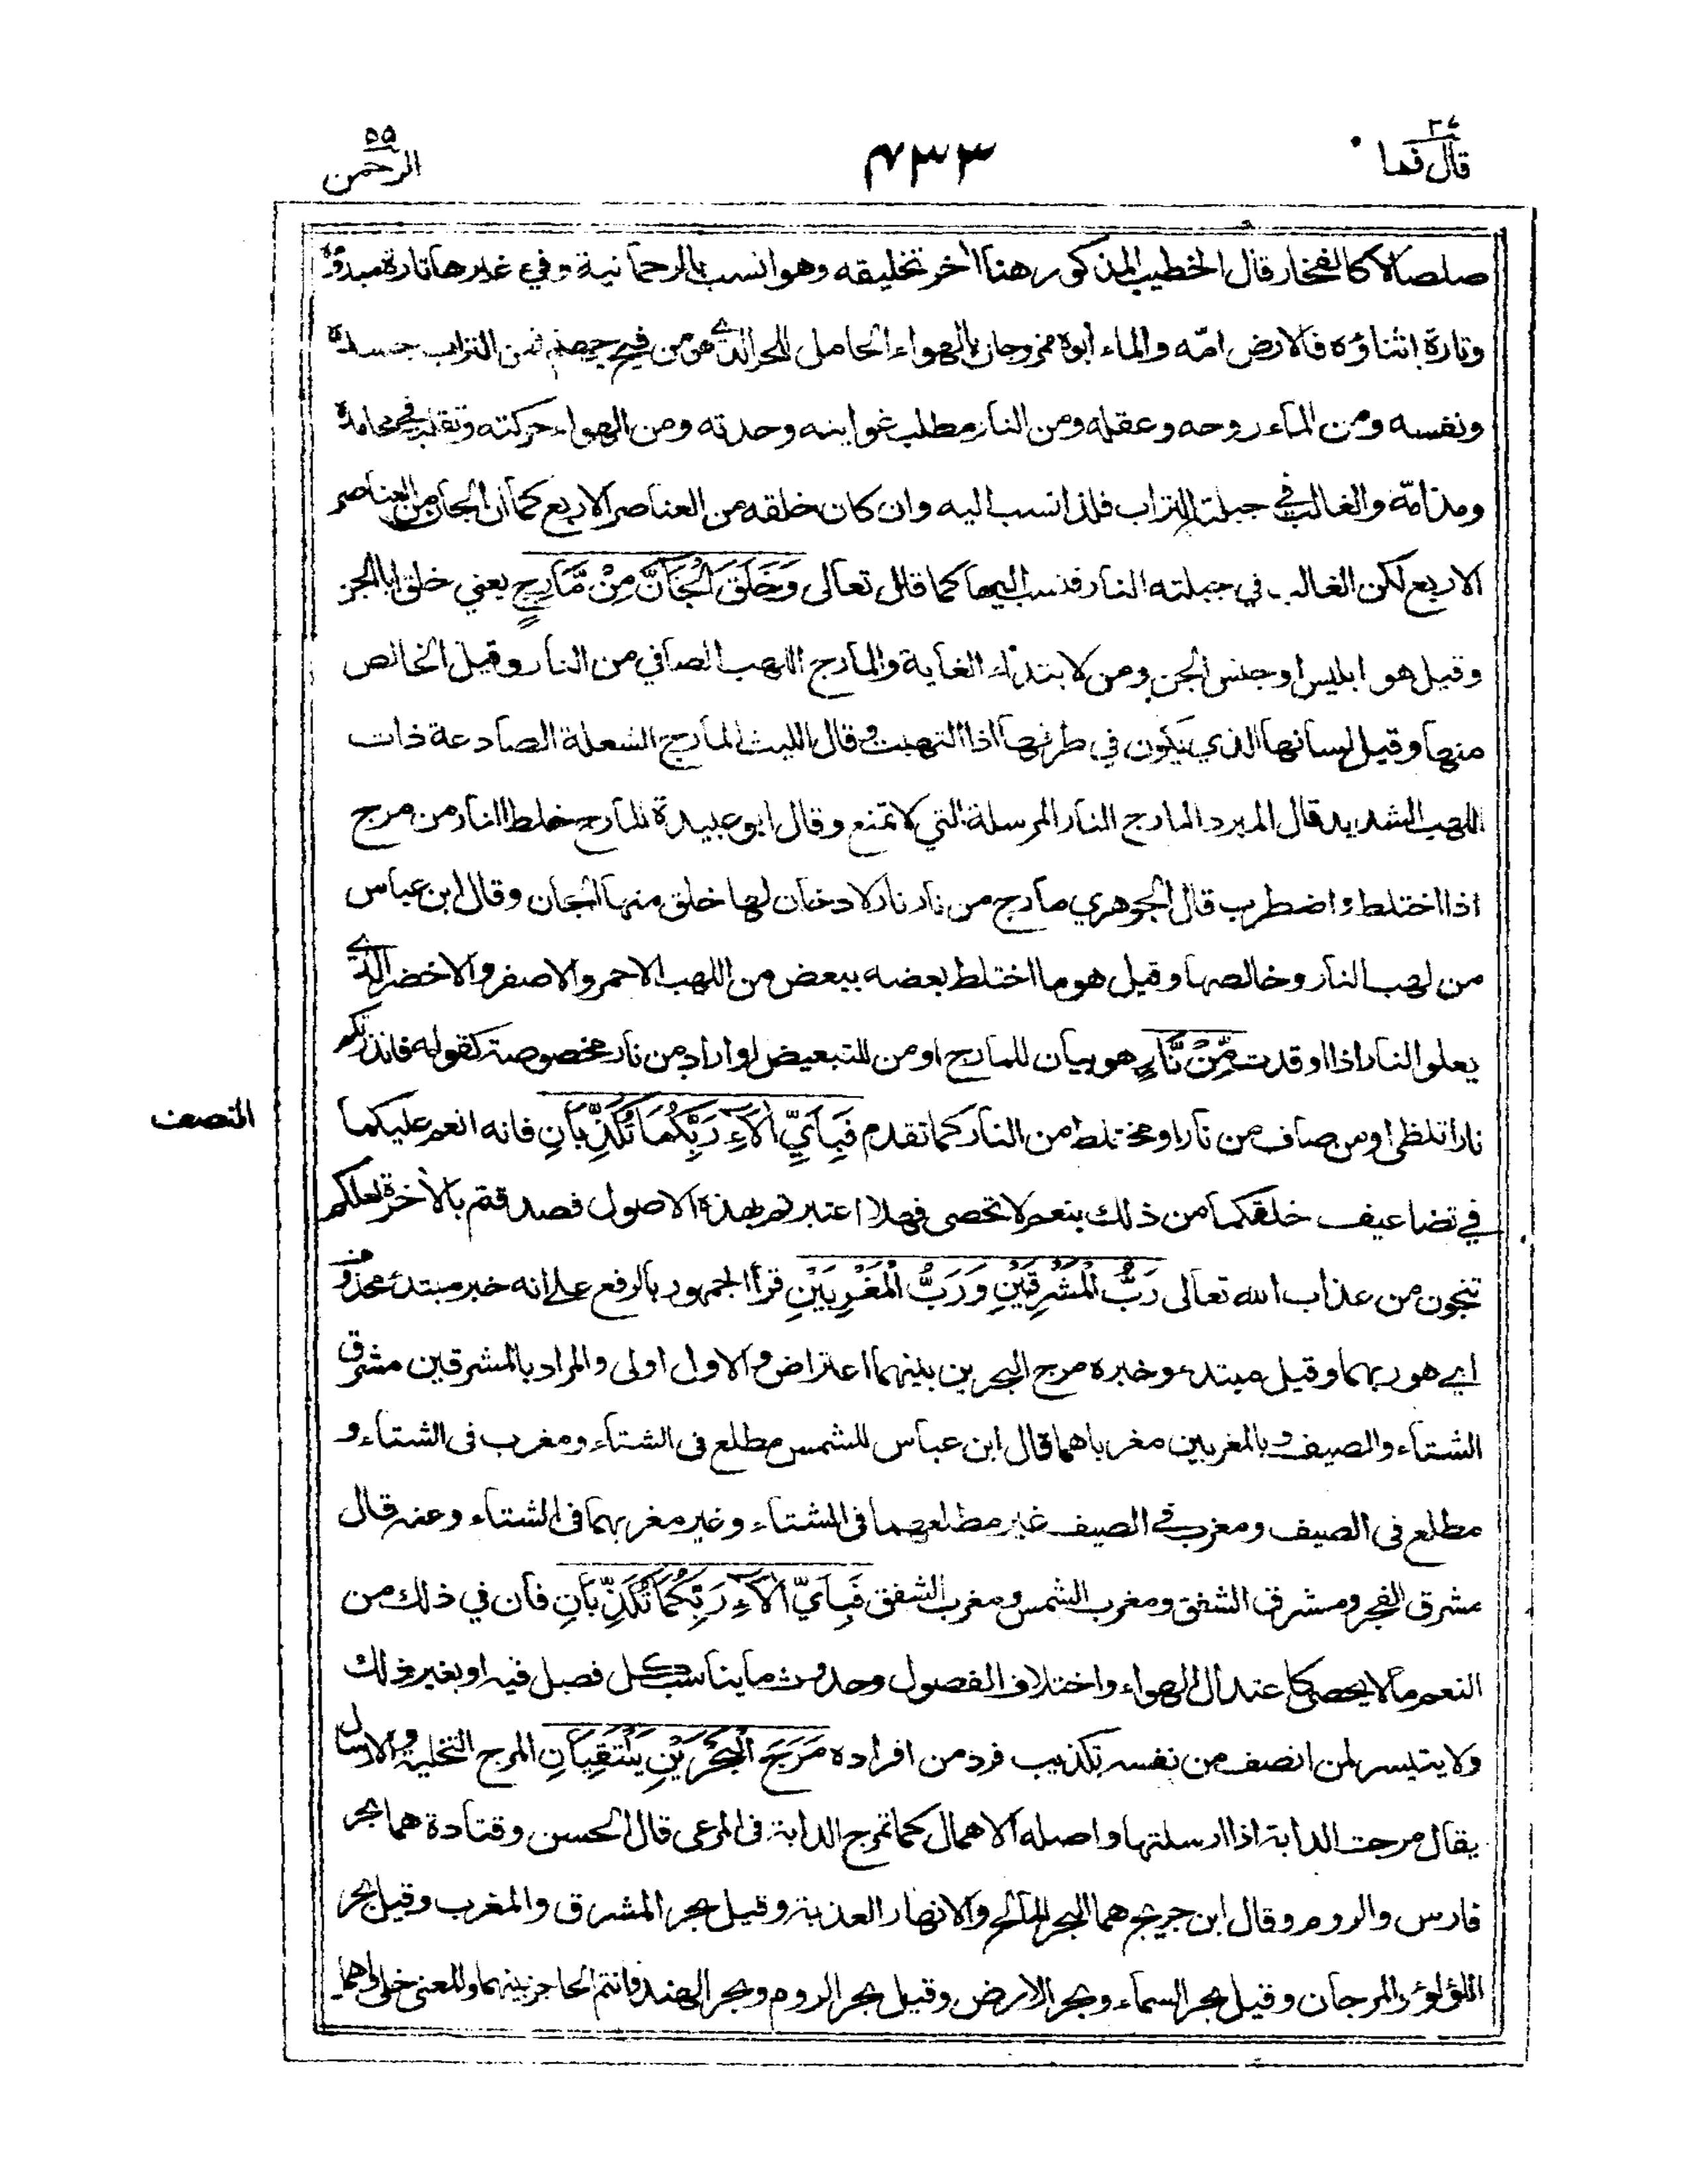 ٢٧
قال فما
٤٣٣
٥٥
الرحمن
صلصالا كالفخار قال الخطيب المذكور هنا اخر تخليقه وهو انسب بالرحمانية وفي غيرها تارة مبدؤه
وتارة اثناؤه فالارض امه والماء ابوه ممزوجان بالهواء الحامل للحر الذي هو من فيح جهنم فمن التراب جسده
ونفسه ومن الماء روحه وعقله ومن النار مطلب غوايته وحدته ومن الهواء حركته وتقلبه في محامده
ومذامّه والغالب في جبلته التراب فلذا نسب اليه وان كان خلقه من العناصر الاربع كما ان الجان من العناصر
الاربع لكن الغالب في جبلته النار فنسب اليها كما قال تعالى وَخَلَقَ الْجَانَّ مِنْ مَّارِجٍ يعني خلق ابا الجن
وقيل هو ابليس او جنس الجن ومن لابتداء الغاية والمارج اللهب الصافي من النار وقيل الخالص
منها وقيل لسانها الذي يكون في طرفها اذا التهبت وقال الليث المارج الشعلة الصادعة ذات
اللهب الشديد قال المبرد المارج النار المرسلة التي لا تمنع وقال ابو عبيدة المارج خلط النار من مرج
اذا اختلط واضطرب قال الجوهري مارج من نار نار لا دخان لها خلق منها الجان وقال ابن عباس
من لهب النار وخالصها وقيل هو ما اختلط بعضه ببعض من اللهب الاحمر والاصفر والاخضر الذي
يعلو النار اذا اوقدت مِّنْ نَّارٍ هو بيان للمارج او من للتبعيض او اراد من نار مخصوصة كقوله فانذرتكم
نارا تلظى او من صاف من نار او مختلط من النار كما تقدم فَبِاَيِّ اٰلَآءِ رَبِّكُمَا تُكَذِّبَانِ فانه انعم عليكما
النصف
في تضاعيف خلقكما من ذلك بنعم لا تحصى فهلا اعتبرتم بهذه الاصول فصدقتم بالاخرة لعلكم
تنجون من عذاب الله تعالى رَبُّ الْمَشْرِقَيْنِ وَرَبُّ الْمَغْرِبَيْنِ قرأ الجمهور بالرفع على انه خبر مبتدء محذوف
اي هو ربهما وقيل مبتدء وخبره مرج البحرين بينهما اعتراض والاول اولى والمراد بالمشرقين مشرق
الشتاء والصيف وبالمغربين مغرباهما قال ابن عباس للشمس مطلع فى الشتاء ومغرب فى الشتاء و
مطلع فى الصيف ومغرب في الصيف غير مطلعهما فى الشتاء وغير مغربهما فى الشتاء وعنه قال
مشرق الفجر ومشرق الشفق ومغرب الشمس ومغرب الشفق فَبِاَيِّ اٰلَآءِ رَبِّكُمَا تُكَذِّبَانِ فان في ذلك من
النعم ما لا يحصى كاعتدال الهواء واختلاف الفصول وحدوث ما يناسب كل فصل فيه او بغير ذلك
ولا يتيسر لمن انصف من نفسه تكذيب فرد من افراده مَرَجَ الْبَحْرَيْنِ يَلْتَقِيَانِ المرج التخلية والارسال
يقال مرجت الدابة اذا ارسلتها واصله الاهمال كما تمرج الدابة فى المرعى قال الحسن وقتادة هما بحر
فارس والروم وقال ابن جريج هما البحر المالح والانهار العذبة وقيل بحر المشرق والمغرب وقيل بحر
اللؤلؤ والمرجان وقيل بحر السماء وبحر الارض وقيل بحر الروم وبحر الهند فانتم الحاجز بينهما والمعنى خلاهما